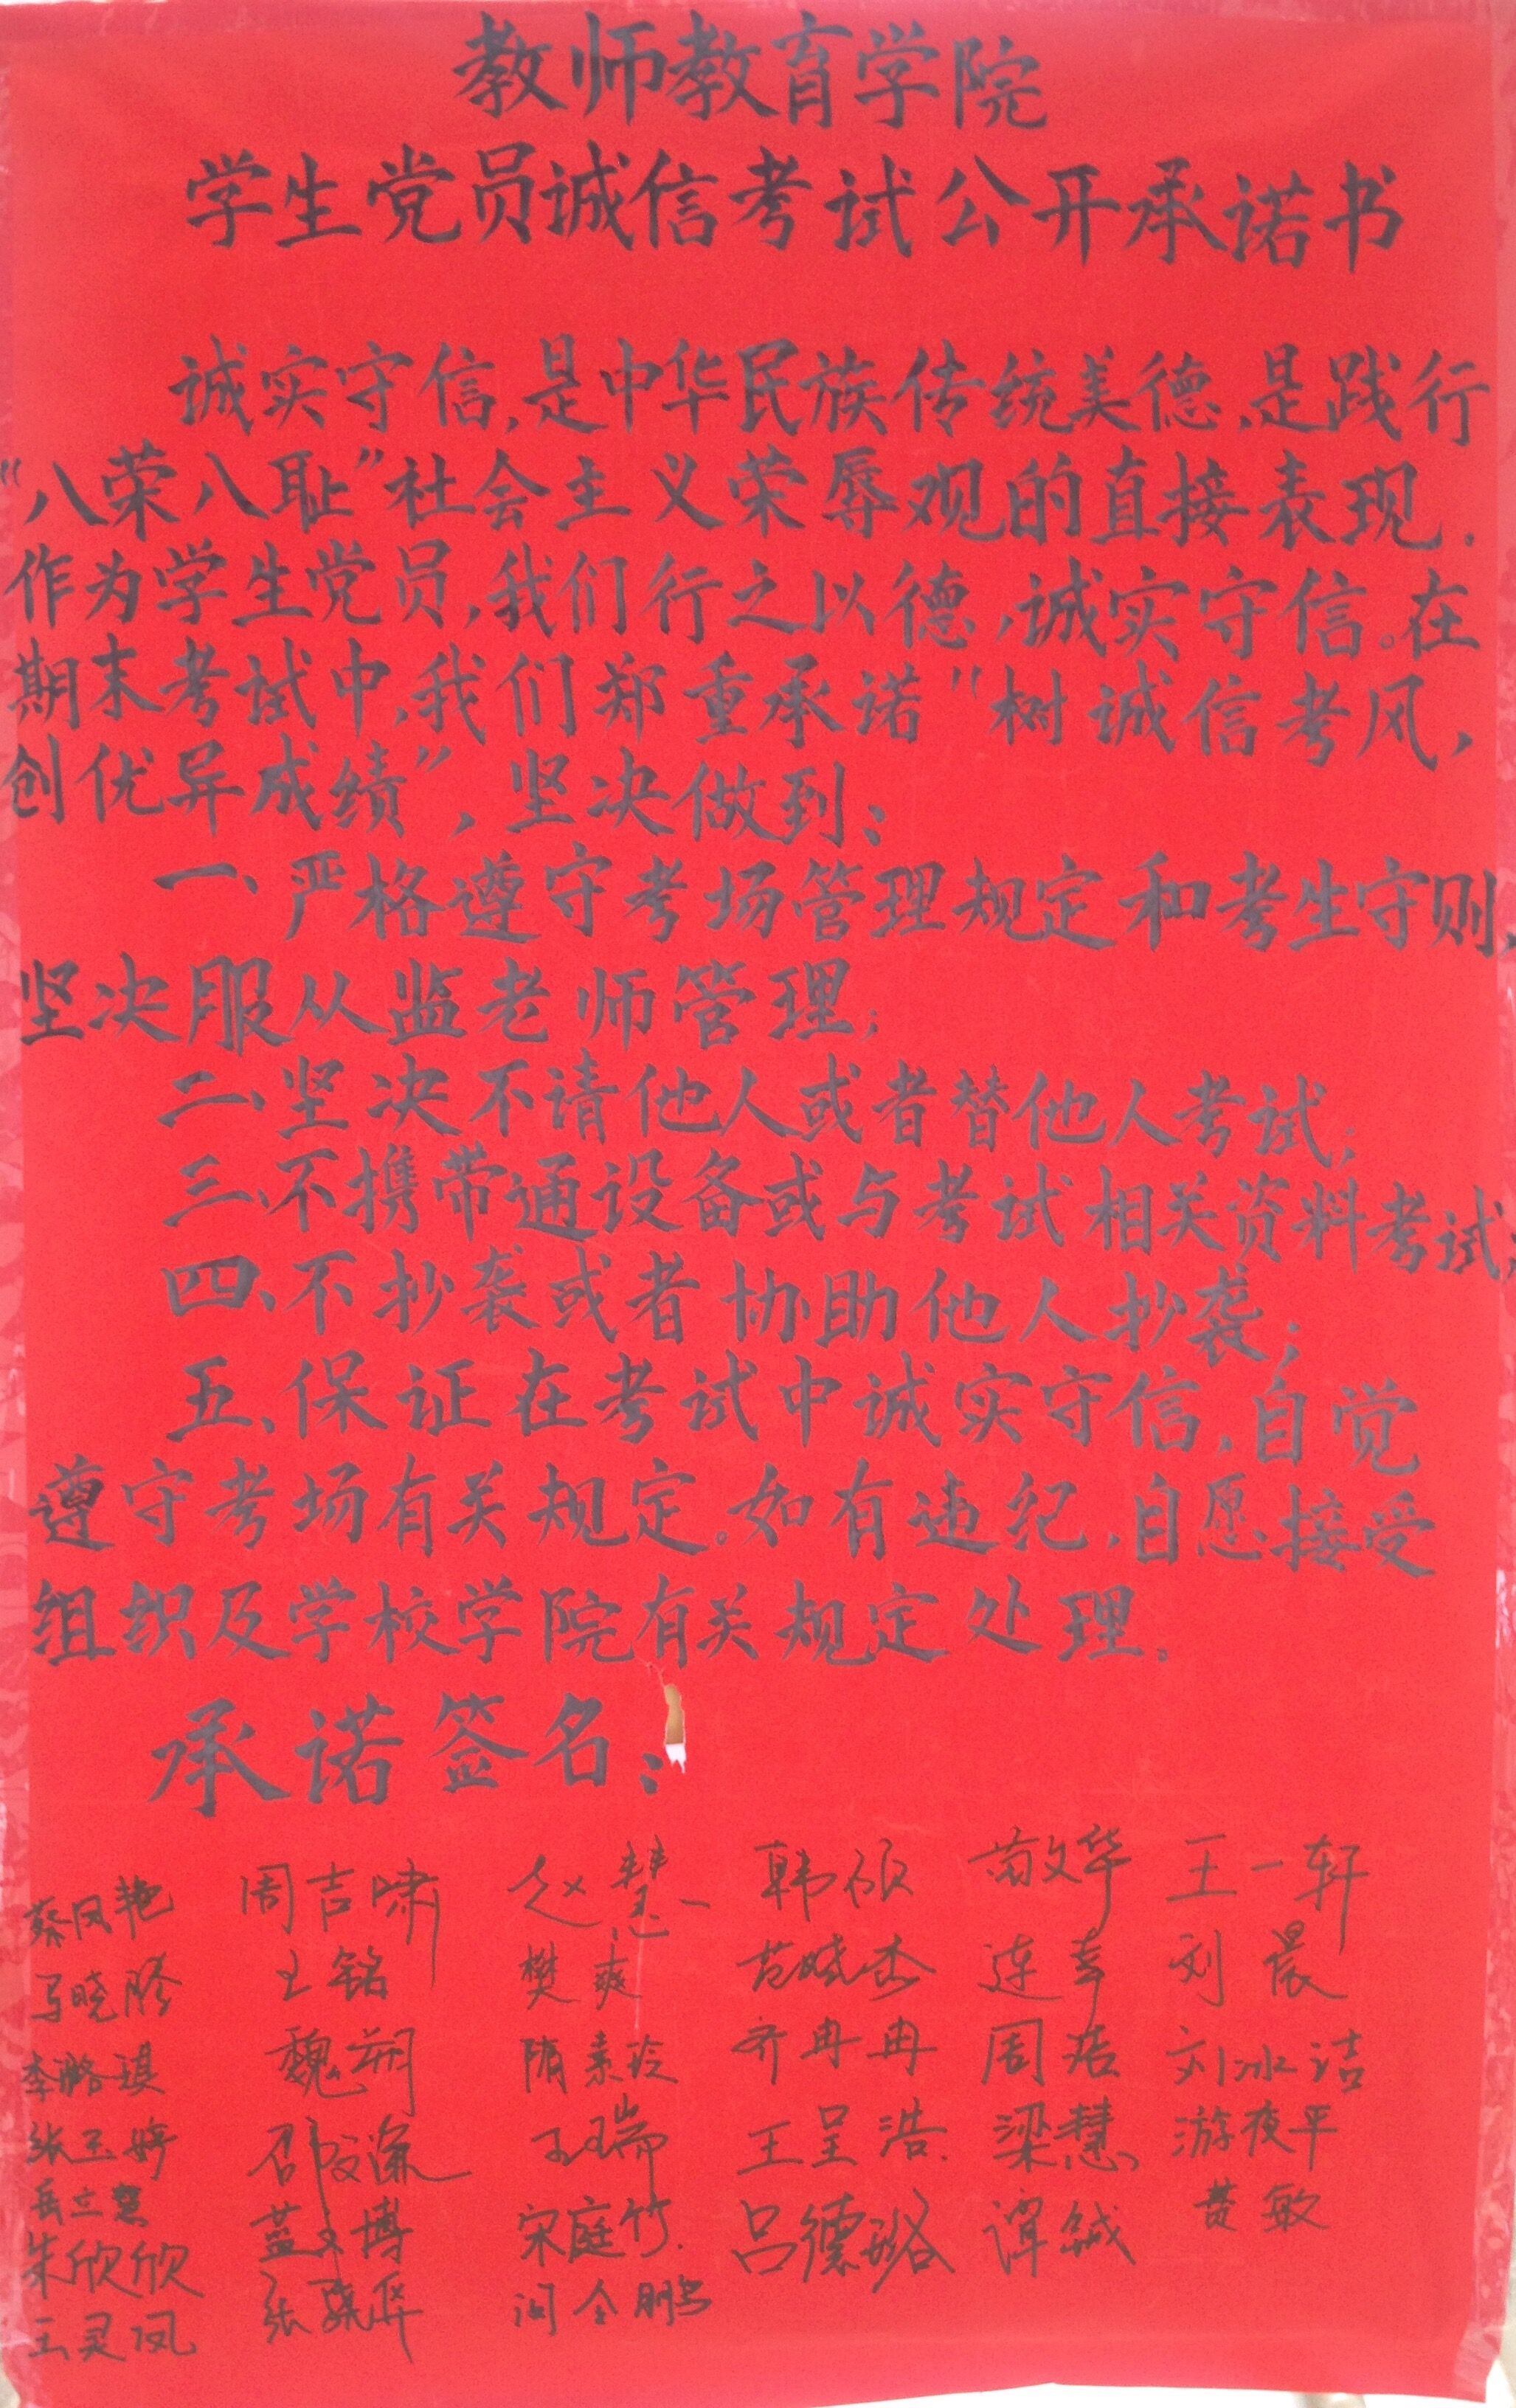 教师教育学院
学生党员诚信考试公开承诺书
诚实守信,是中华民族传统美德,是践行
“八荣八耻”社会主义荣辱观的直接表现.
作为学生党员,我们行之以德,诚实守信。在
期末考试中,我们郑重承诺“树诚信考风,
创优异成绩”,坚决做到:
一、严格遵守考场管理规定和考生守则,
坚决服从监老师管理;
二、坚决不请他人或者替他人考试;
三、不携带通设备或与考试相关资料考试;
四、不抄袭或者协助他人抄袭;
五、保证在考试中诚实守信,自觉
遵守考场有关规定。如有违纪,自愿接受
组织及学校学院有关规定处理.
承诺签名:
蔡凤艳 周吉啸 赵慧一 韩硕 苗文华 王一轩
马晓 王铭 樊爽 范晓杰 连幸 刘晨
李璐琪 魏朔 隋素玲 齐冉冉 周浩 刘冰洁
张玉婷 邵文濂 王瑞 王呈浩. 梁慧 游夜平
岳立慧 蓝文博 宋庭竹. 吕德璐 谭斌 黄敏
朱欣欣 张骥 闫令鹏
王灵凤